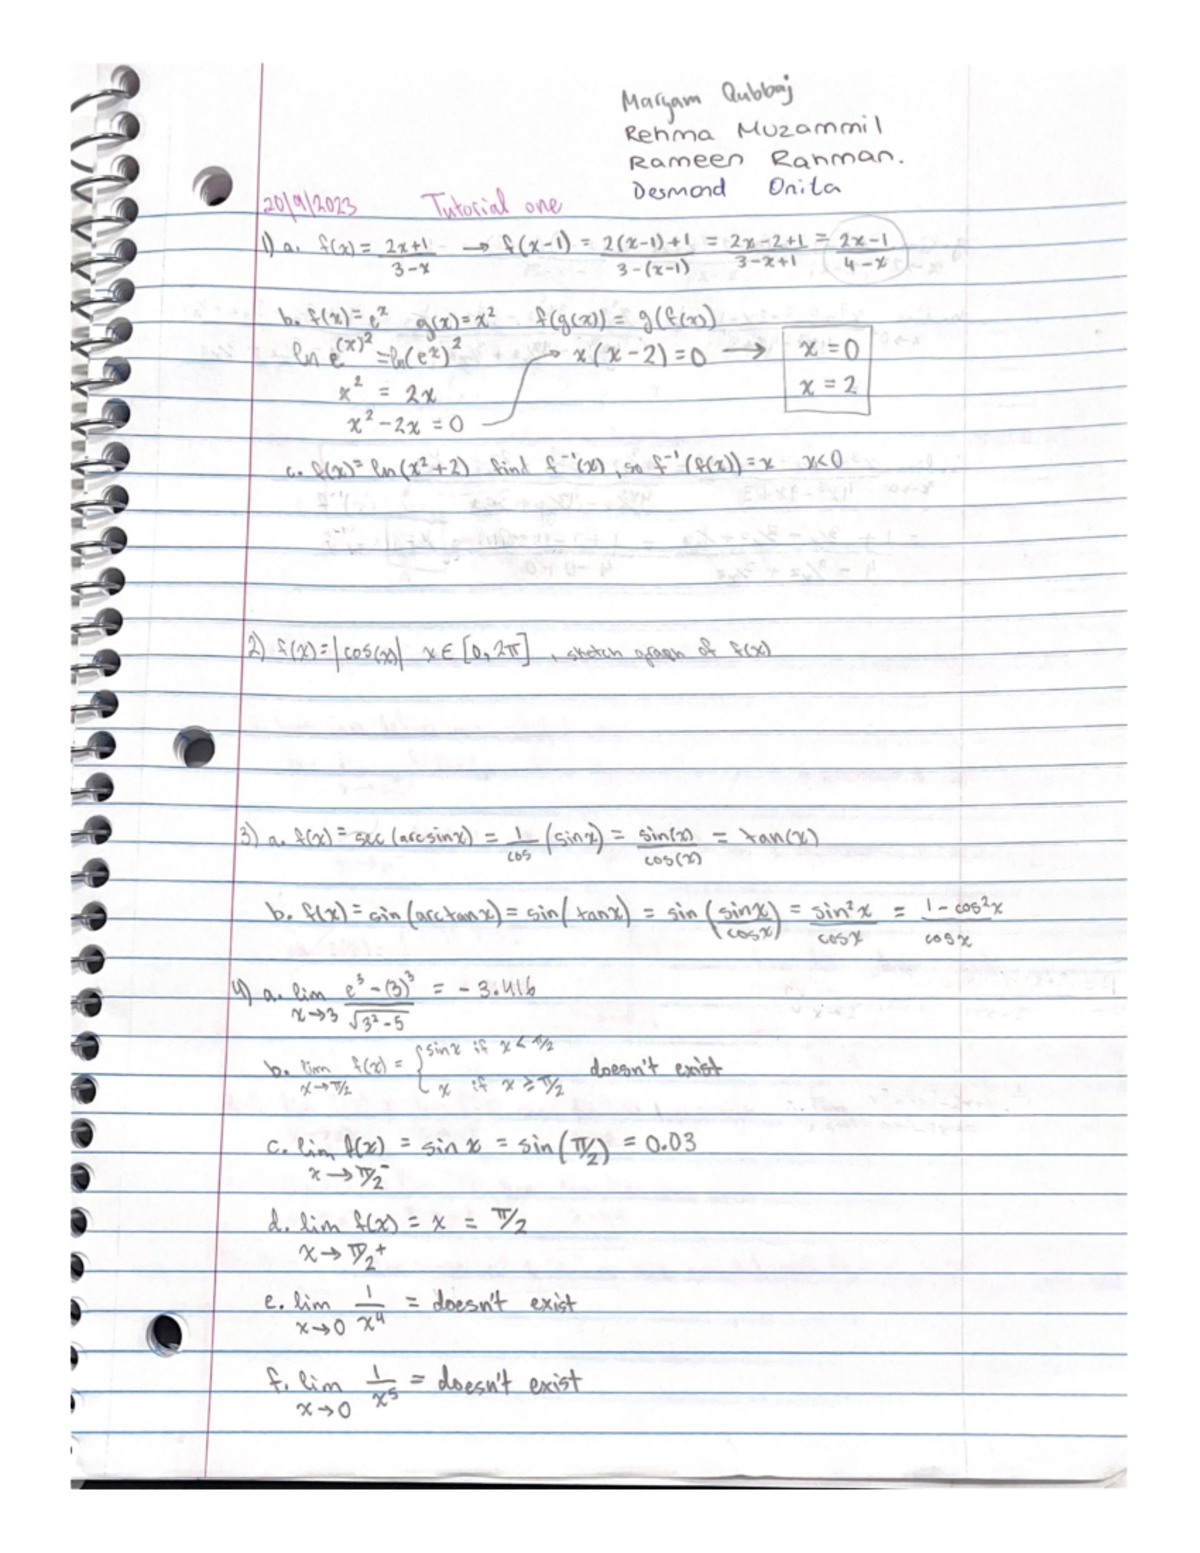 Maryam Qubbaj
Rehma Muzammil
Rameen Rahman.
Desmond Onita
20/9/2023 Tutorial one
1) a. f(x) = 2x+1/3-x → f(x-1) = 2(x-1)+1/3-(x-1) = 2x-2+1/3-x+1 = 2x-1/4-x
b. f(x)=e^x g(x)=x² f(g(x)) = g(f(x))
ln e^(x)² = ln(e^x)² → x(x-2)=0 → x=0
x² = 2x x=2
x²-2x=0
c. f(x)=ln(x²+2) find f⁻¹(x), so f⁻¹(f(x))=x x<0
2) f(x)=|cos(x)| x∈[0,2π], sketch graph of f(x)
3) a. f(x) = sec(arcsinx) = 1/cos (sinx) = sin(x)/cos(x) = tan(x)
b. f(x) = sin(arctanx) = sin(tanx) = sin(sinx/cosx) = sin²x/cosx = 1-cos²x/cosx
4) a. lim x→3 e³-(3)³/√3²-5 = -3.416
b. lim x→π/2 f(x) = { sinx if x<π/2
x if x≥π/2 doesn't exist
c. lim x→π/2⁻ f(x) = sin x = sin(π/2) = 0.03
d. lim x→π/2⁺ f(x) = x = π/2
e. lim x→0 1/x⁴ = doesn't exist
f. lim x→0 1/x⁵ = doesn't exist